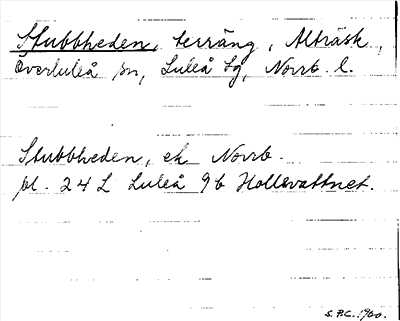 Stubbheden, terräng, Alträsk,
Överluleå sn, Luleå tg, Norrb. l.
Stubbheden, ek Norrb.
bl. 24 L Luleå 9b Hollsvattnet.
S.F.C. 1960.